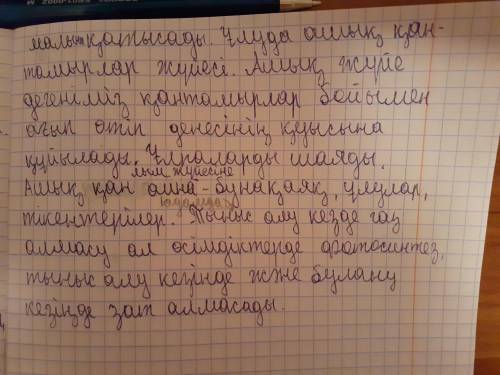 малы қатысады. Ұлуда ашық қан-
тамырлар жүйесі. Ашық жүйе
дегеніміз қантамырлар бойымен
ағып өтіп денесінің қуысына
құйылады. Ұлпаларды шаяды.
лым жүйесіне
Ашық қан айна - бунақаяқ, ұлулар,
тікентерілер. Тыныс алу кезде газ
алмасу ал өсімдіктерде фотосинтез,
тыныс алу кезінде және булану
кезінде зат алмасады.